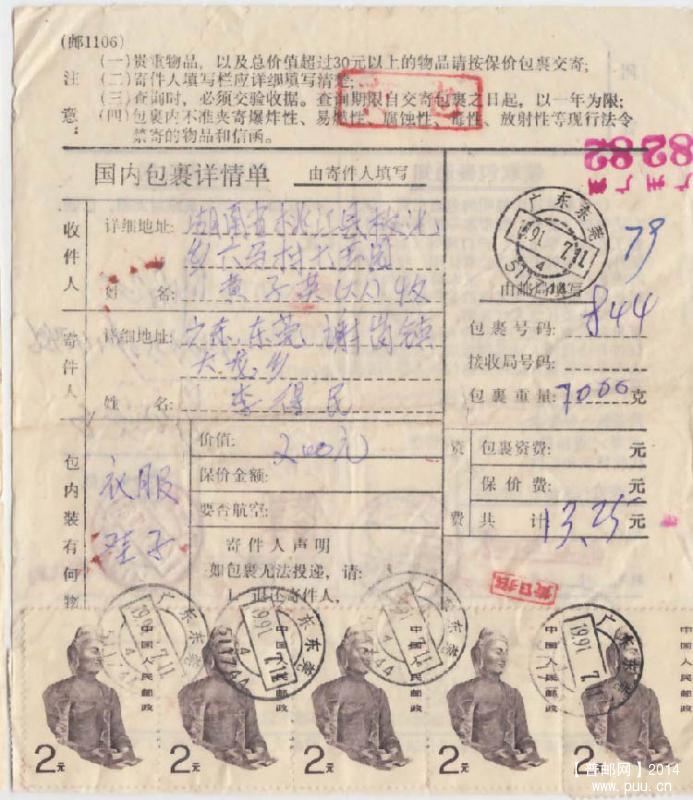 (邮1106)
注意:
(一)贵重物品，以及总价值超过30元以上的物品请按保价包裹交寄;
(二)寄件人填写栏应详细填写清楚;
(三)查询时，必须交验收据。查询期限自交寄包裹之日起，以一年为限;
(四)包裹内不准夹寄爆炸性、易燃性、腐蚀性、毒性、放射性等现行法令
禁寄的物品和信函。
国内包裹详情单
由寄件人填写
收件人
详细地址: 湖南省桃江县
姓名: 黄
寄件人
详细地址: 广东东莞 谢岗镇
大 乡
姓名: 李得民
广东东莞
1991.7.11
4
511744
79
由邮局填写
包裹号码: 844
接收局号码:
包裹重量: 7000克
包内装有何物
衣服
鞋子
价值: 200元
保价金额:
要否航空:
寄件人声明
如包裹无法投递，请:
1. 退还寄件人.
资费
包裹资费: 元
保价费: 元
共计 13.25元
8282
广东东莞
1991.7.11
4
511744
中国人民邮政
2元
中国人民邮政
2元
中国人民邮政
2元
中国人民邮政
2元
中国人民邮政
2元
【普邮网】2014
www.puu.cn